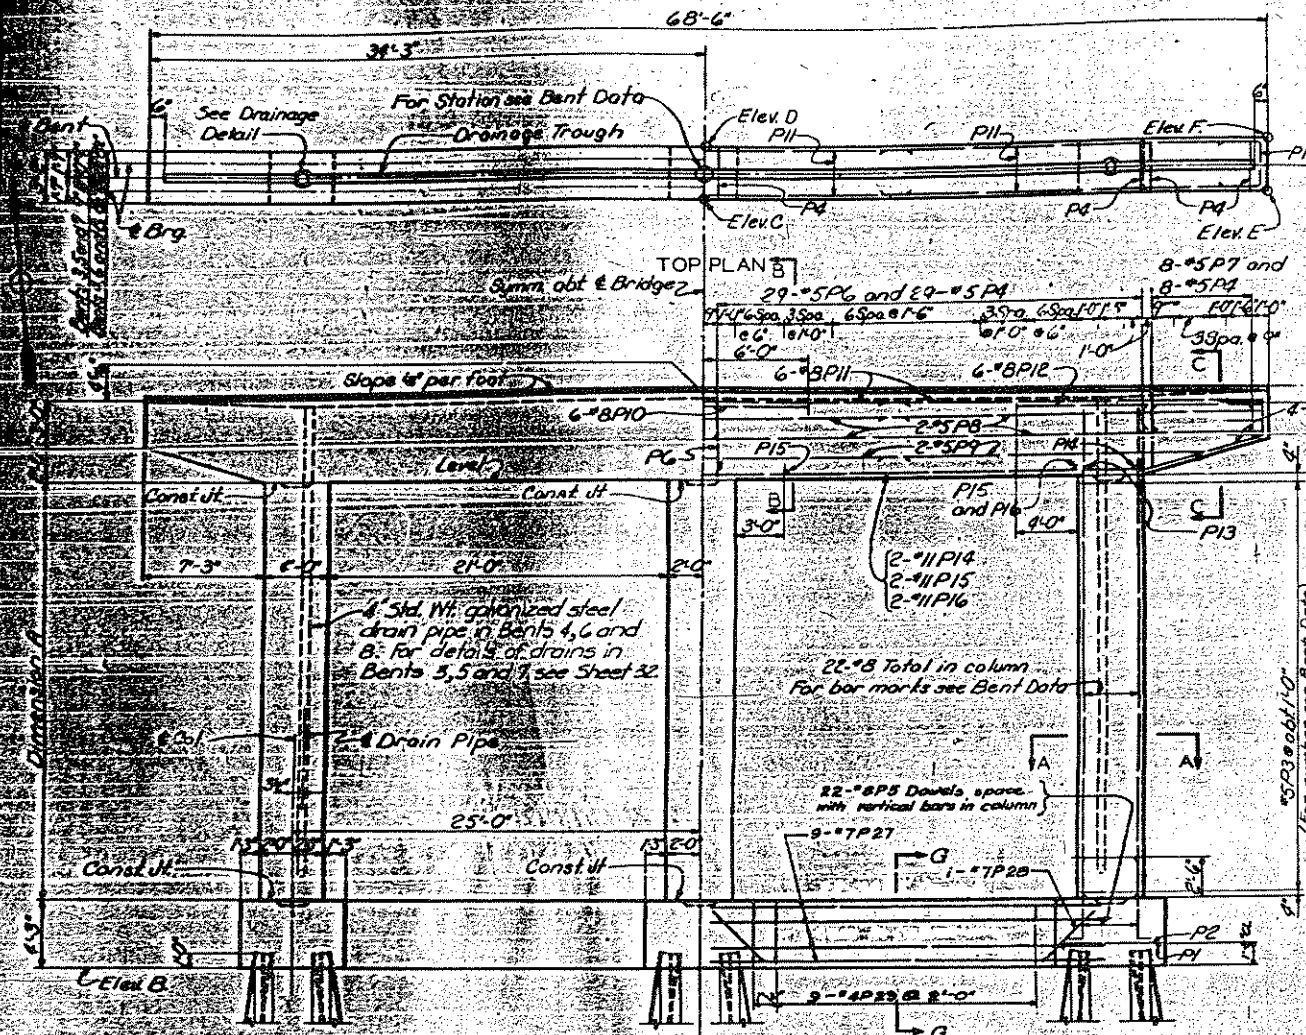 68'-6"
34'-3"
6"
See Drainage
Detail
For Station see Bent Data
Drainage Trough
Elev. D
P11
P11
Elev. F
6"
℄ Bent
℄ Brg
P4
Elev. C
P4
P4
Elev. E
TOP PLAN
B
Symm. abt ℄ Bridge
8-#5P7 and
8-#5P4
29-#5P6 and 29-#5P4
6 Spa
@ 6"
3 Spa
@ 1'-0"
6 Spa @ 1'-6"
3 Spa
@ 1'-0"
6 Spa
@ 6"
1'-0"
3 Spa. @ 9"
6'-0"
C
Slope ⅛" per foot
6-#8P11
6-#8P12
6-#8P10
2-#5P8
2-#5P9
4"
P6
P15
P14
Level
4"
Const. Jt.
Const. Jt
B
P15
and P16
C
3'-0"
4'-0"
P13
7'-3"
21'-0"
2'-0"
2-#11P14
2-#11P15
2-#11P16
4" Std. Wt. galvanized steel
drain pipe in Bents 4, 6 and
8. For details of drains in
Bents 3, 5 and 7 see Sheet 32
22-#8 Total in column
For bar marks see Bent Data
Dimension A
℄ Col
℄ Drain Pipe
A
A
#5P3 @ abt 1'-0"
22-#8P5 Dowels, space
with vertical bars in column
25'-0"
9-#7P27
1'-3"
2'-0"
1'-3"
1'-3"
2'-0"
Const. Jt.
Const. Jt
G
1-#7P28
2'-6"
4"
P2
P1
Elev. B
9-#4P29 @ 2'-0"
G